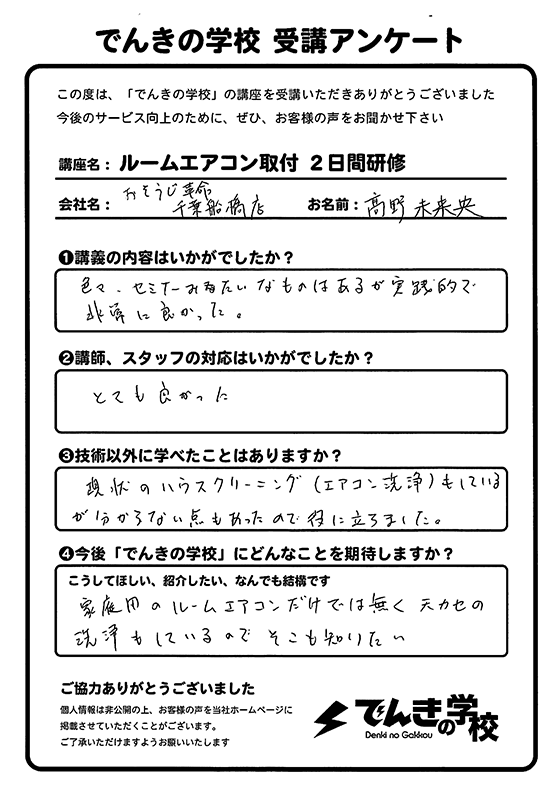 でんきの学校 受講アンケート
この度は、「でんきの学校」の講座を受講いただきありがとうございました
今後のサービス向上のために、ぜひ、お客様の声をお聞かせ下さい
講座名：ルームエアコン取付 2日間研修
会社名：おそうじ革命
千葉船橋店
お名前：髙野未来央
❶講義の内容はいかがでしたか？
色々、セミナーみたいなものはあるが実践的で
非常に良かった。
❷講師、スタッフの対応はいかがでしたか？
とても良かった
❸技術以外に学べたことはありますか？
現状のハウスクリーニング(エアコン洗浄)もしている
が分からない点もあったので役に立ちました。
❹今後「でんきの学校」にどんなことを期待しますか？
こうしてほしい、紹介したい、なんでも結構です
家庭用のルームエアコンだけでは無く天カセの
洗浄もしているのでそこも知りたい
ご協力ありがとうございました
個人情報は非公開の上、お客様の声を当社ホームページに
掲載させていただくことがございます。
ご了承いただけますようお願いいたします
でんきの学校
Denki no Gakkou